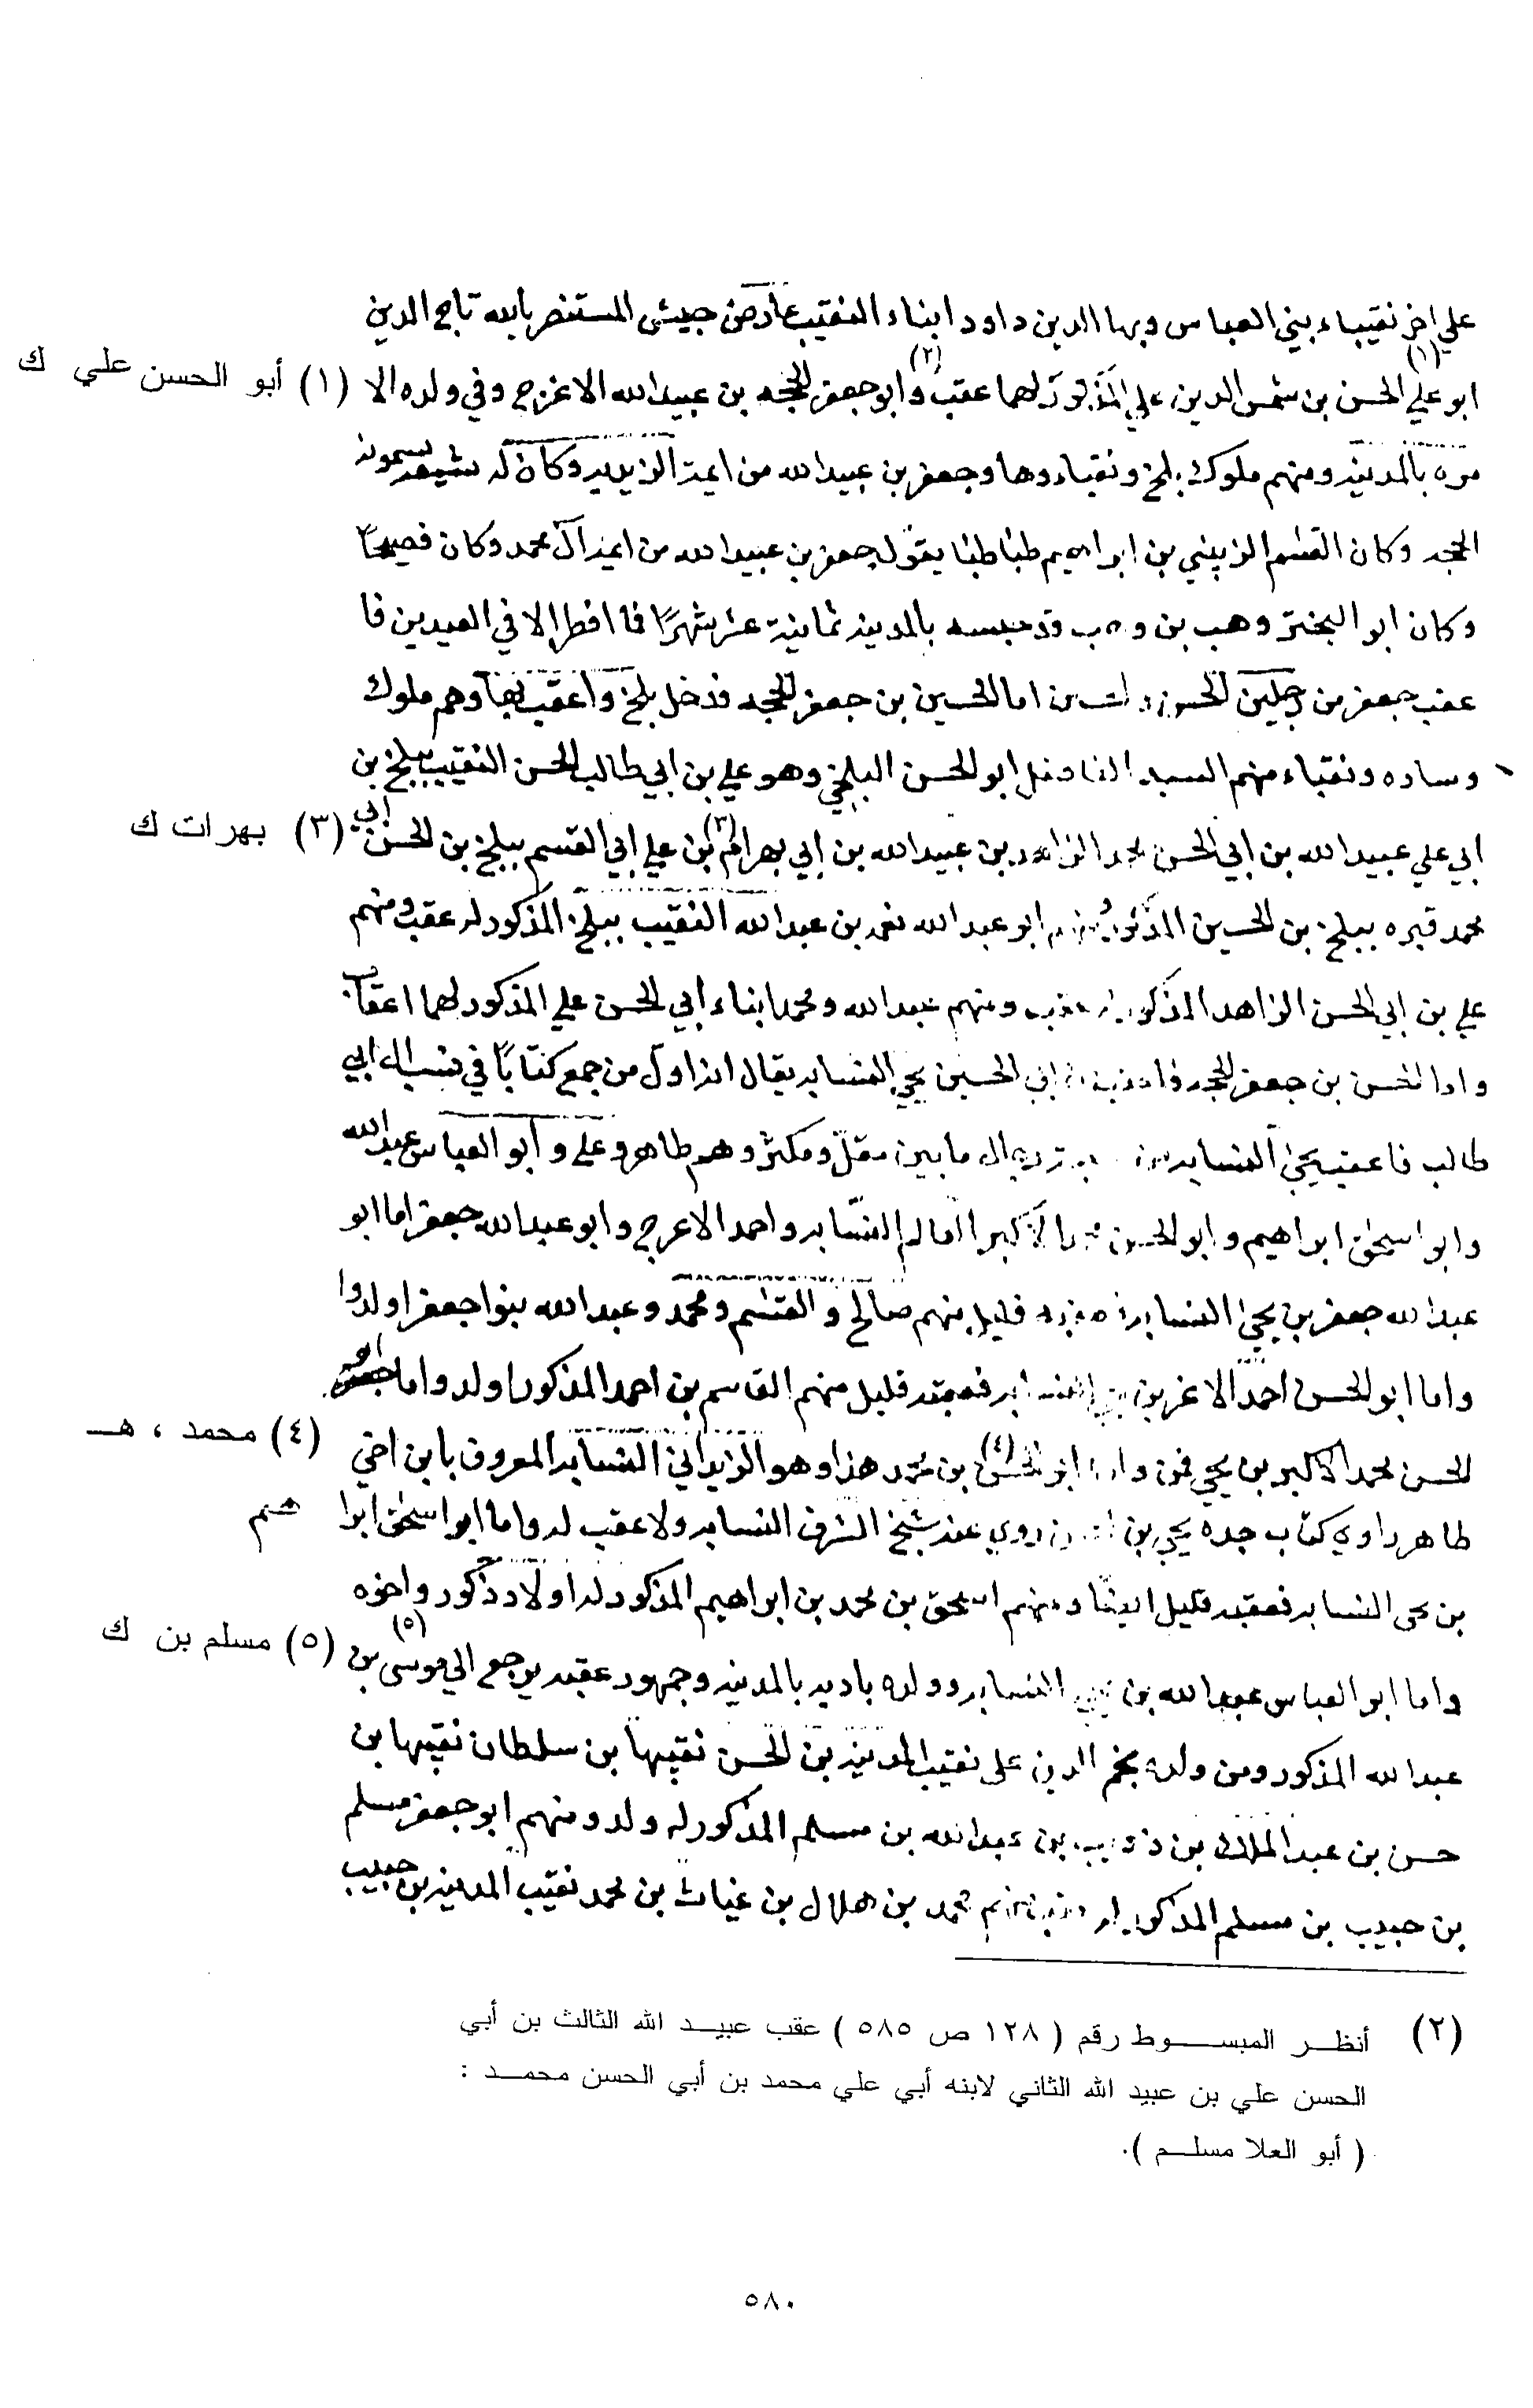 علي اخر نقيباء بني العباس وبها الدين داود ابناء النقيب عارض جيش المستنصر بالله تاج الدين
ابو علي (١) الحسن بن شمس الدين علي المذكور لهما عقب (٢) وابو جعفر الحجه بن عبيد الله الاعرج وفي ولده الا (١) أبو الحسن علي ك
مره بالمدينه ومنهم ملوك بلخ ونقباءوها وجعفر بن عبيد الله من ايمة الزيديه وكان له شيعه يسمونه
الحجه وكان القسم الرسي بن ابراهيم طباطبا يقول جعفر بن عبيد الله من ايمة آل محمد وكان فصيحًا
وكان ابو البختر وهب بن وهب قد حبسه بالمدينه ثمانية عشر شهرًا فما افطر الا في العيدين فا
عقب جعفر من رجلين الحسن والحسين اما الحسين بن جعفر الحجه فدخل بلخ واعقب بها وهم ملوك
وساده ونقباء منهم السيد الفاضل ابو الحسن البلخي وهو علي بن ابي طالب الحسن النقيب ببلخ بن
ابي علي عبيد الله بن ابي الحسن محمد الزاهد بن عبيد الله بن ابي بهرام (٣) بن علي ابي القسم ببلخ بن الحسن ابي (٣) بهرات ك
محمد قبره ببلخ بن الحسين المذكور ومنهم ابو عبد الله نعمه بن عبد الله النقيب ببلخ المذكور له عقب ومنهم
علي بن ابي الحسن الزاهد المذكور له عقب ومنهم عبد الله ومحمد ابناء ابي الحسن علي المذكور لهما اعقاب
واما الحسن بن جعفر الحجه ابي الحسين يحيى النسابه يقال انه اول من جمع كتابًا في نسب ال ابي
طالب فاعقب يحيى النسابه من رجال ما بين مقل ومكثر وهم طاهر وعلي وابو العباس عبد الله
وابو اسحق ابراهيم وابو الحسن محمد الاكبر العالم النسّابه واحمد الاعرج وابو عبد الله جعفر اما ابو
عبد الله جعفر بن يحيى النسابه فعقبه قليل منهم صالح والقسم ومحمد وعبد الله بنوا جعفر اولدوا
واما ابو الحسن احمد الاعز بن يحيى النسابه فعقبه قليل منهم القاسم بن احمد المذكور اولد واما ابو
الحسن محمد الاكبر بن يحيى فمن ولده ابو الحسن (٤) بن محمد هذا وهو الزيداني النسابه المعروف بابن اخي (٤) محمد ، هـ
طاهر راوي كتاب جده يحيى بن الحسن روي عنه شيخ الشرف النسابه ولا عقب له واما ابو اسحق ابرا هيم
بن يحى النسابه فعقبه قليل ايضًا ومنهم اسحق بن محمد بن ابراهيم المذكور له اولاد ذكور واخوه
واما ابو العباس عبد الله بن يحيى النسابه وولده باديه بالمدينه وجمهور عقبه يرجع الي موسى (٥) بن (٥) مسلم بن ك
عبد الله المذكور ومن ولده نجم الدين على نقيب المدينه بن الحسن نقيبها بن سلطان نقيبها بن
حسن بن عبد الملك بن ذويب بن عبد الله بن مسلم المذكور له ولد ومنهم ابو جعفر مسلم
بن حبيب بن مسلم المذكور له عقب منهم محمد بن هلال بن غياث بن محمد نقيب المدينه بن حبيب
(٢) أنظـر المبســوط رقم ( ١٢٨ ص ٥٨٥ ) عقب عبيـد الله الثالث بن أبي
الحسن علي بن عبيد الله الثاني لابنه أبي علي محمد بن أبي الحسن محمـد :
( أبو العلا مسلـم ).
٥٨٠